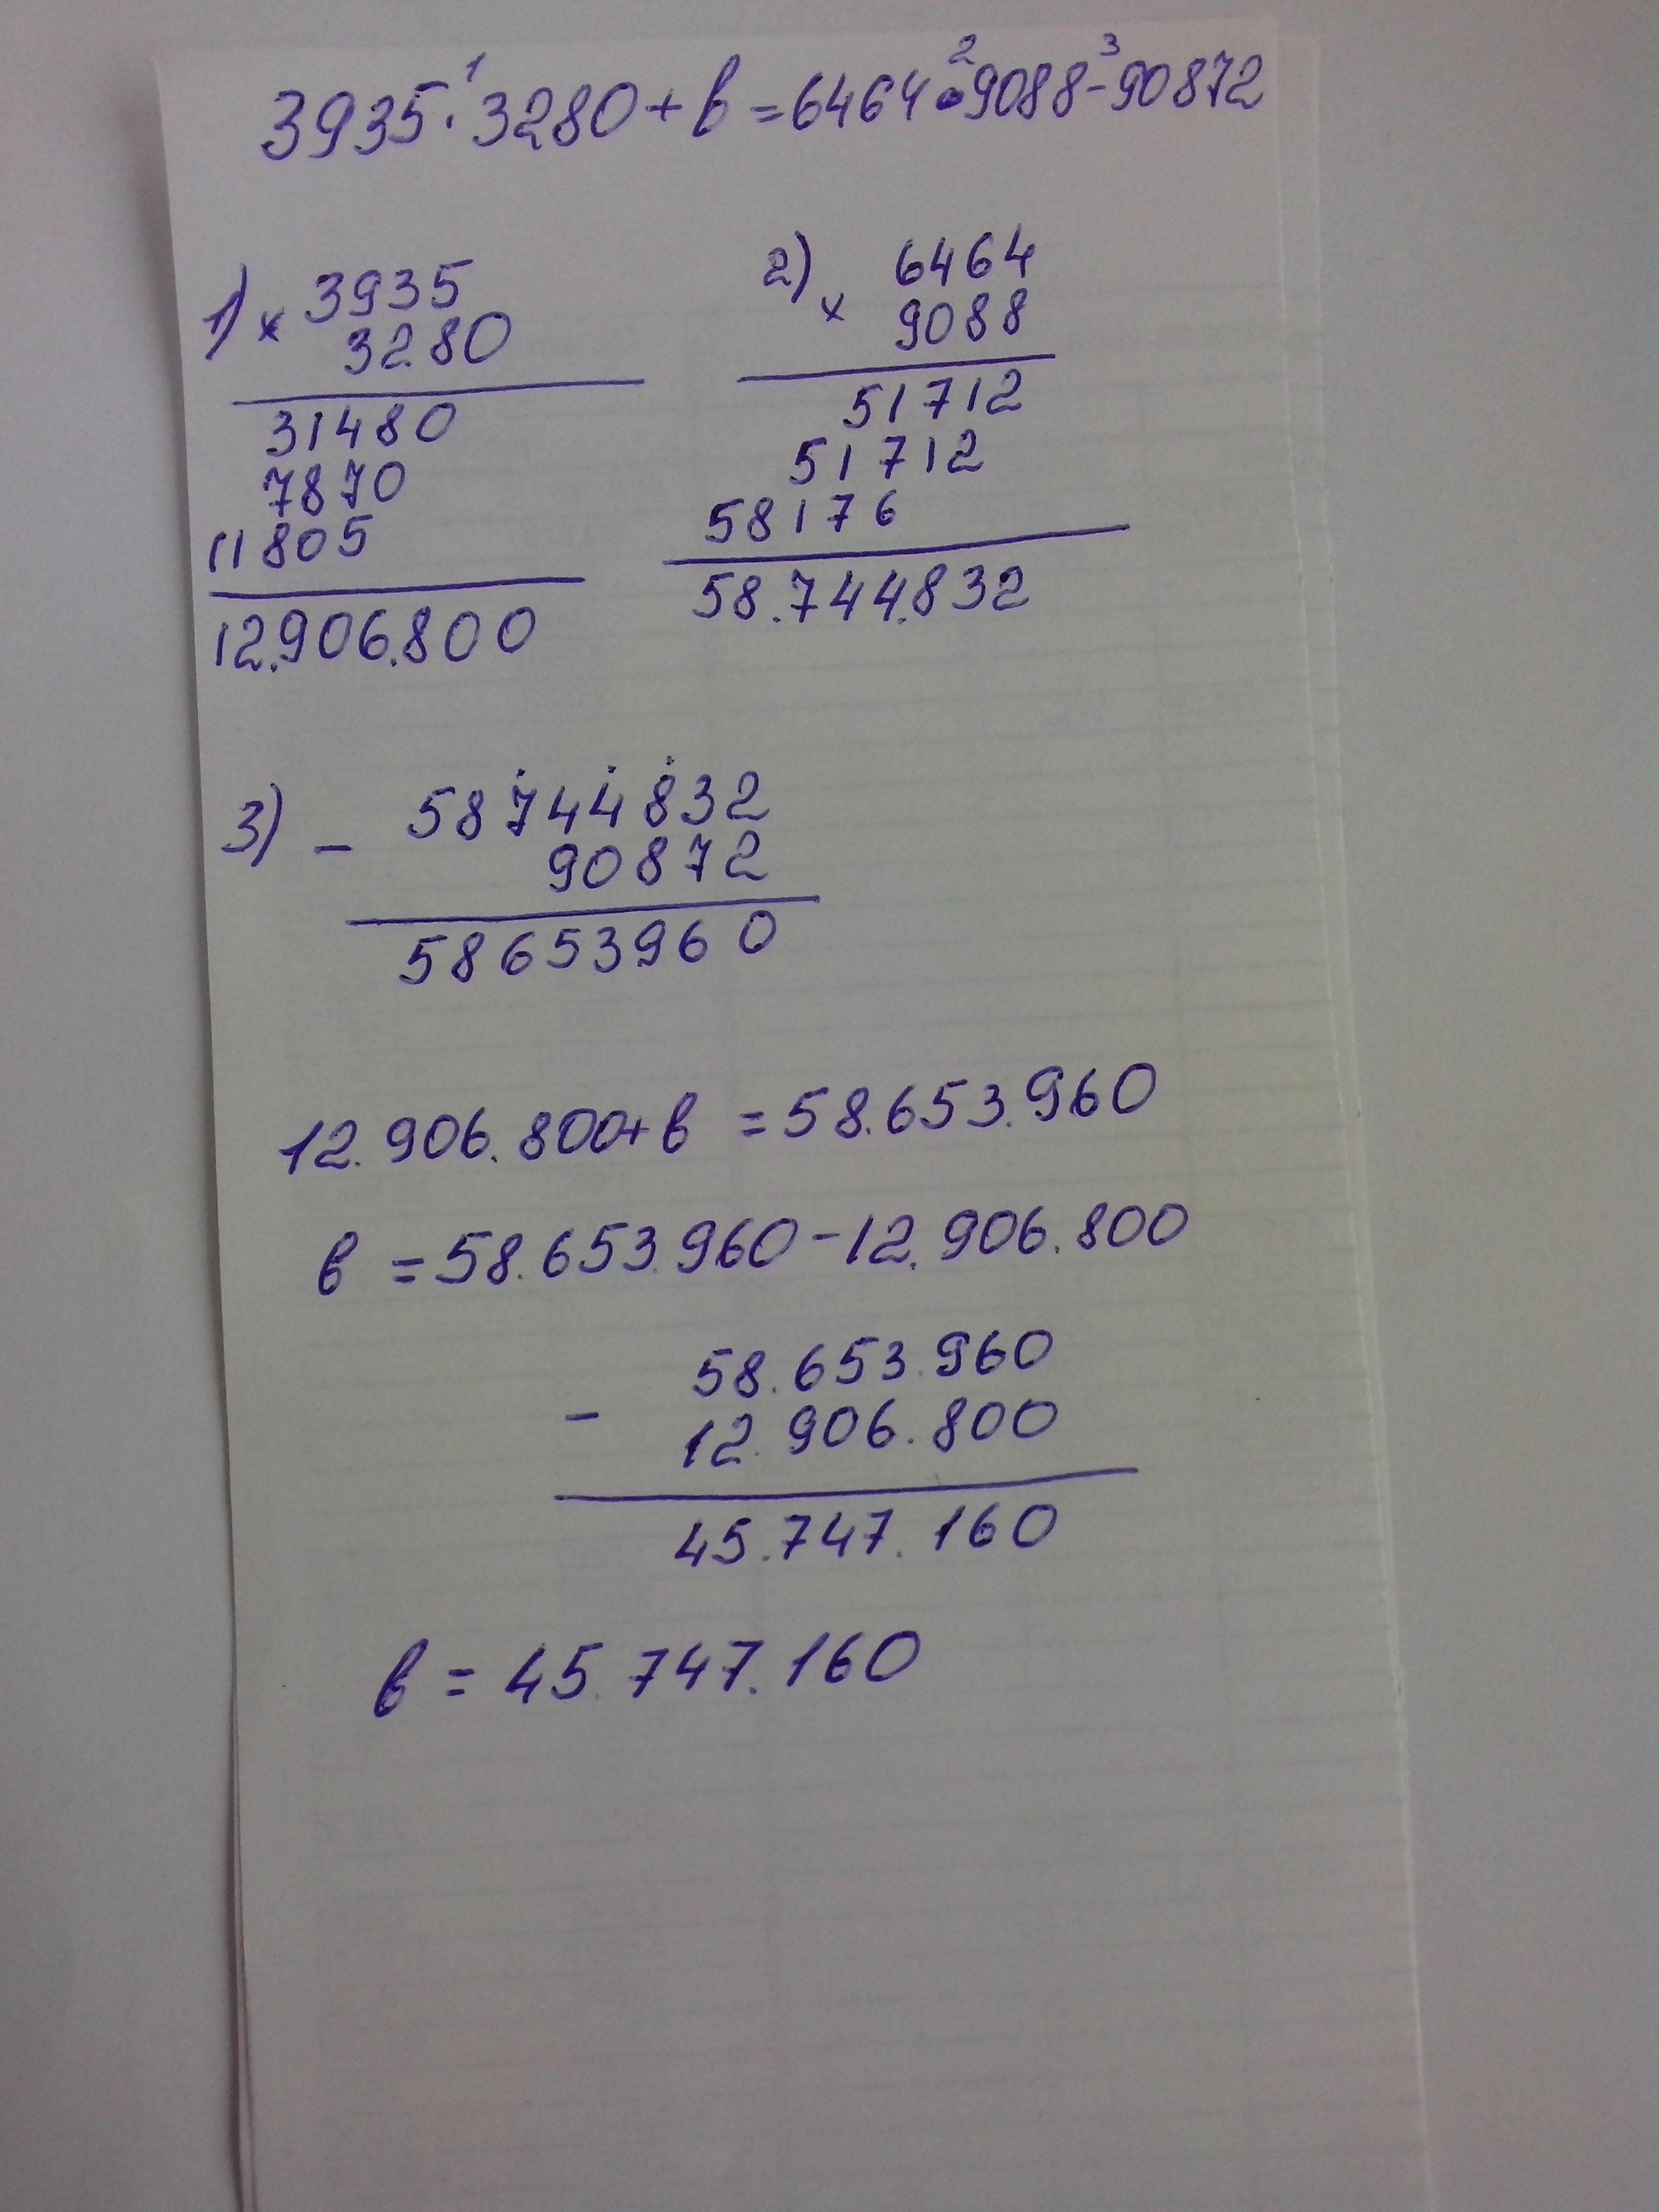 3935 · 3280 + b = 6464 · 9088 - 90872
1 2 3
1) × 3935
3280
31480
7870
11805
12.906.800
2) × 6464
9088
51712
51712
58176
58.744.832
3) - 58744832
90872
58653960
12.906.800 + b = 58.653.960
b = 58.653.960 - 12.906.800
58.653.960
-
12.906.800
45.747.160
b = 45.747.160